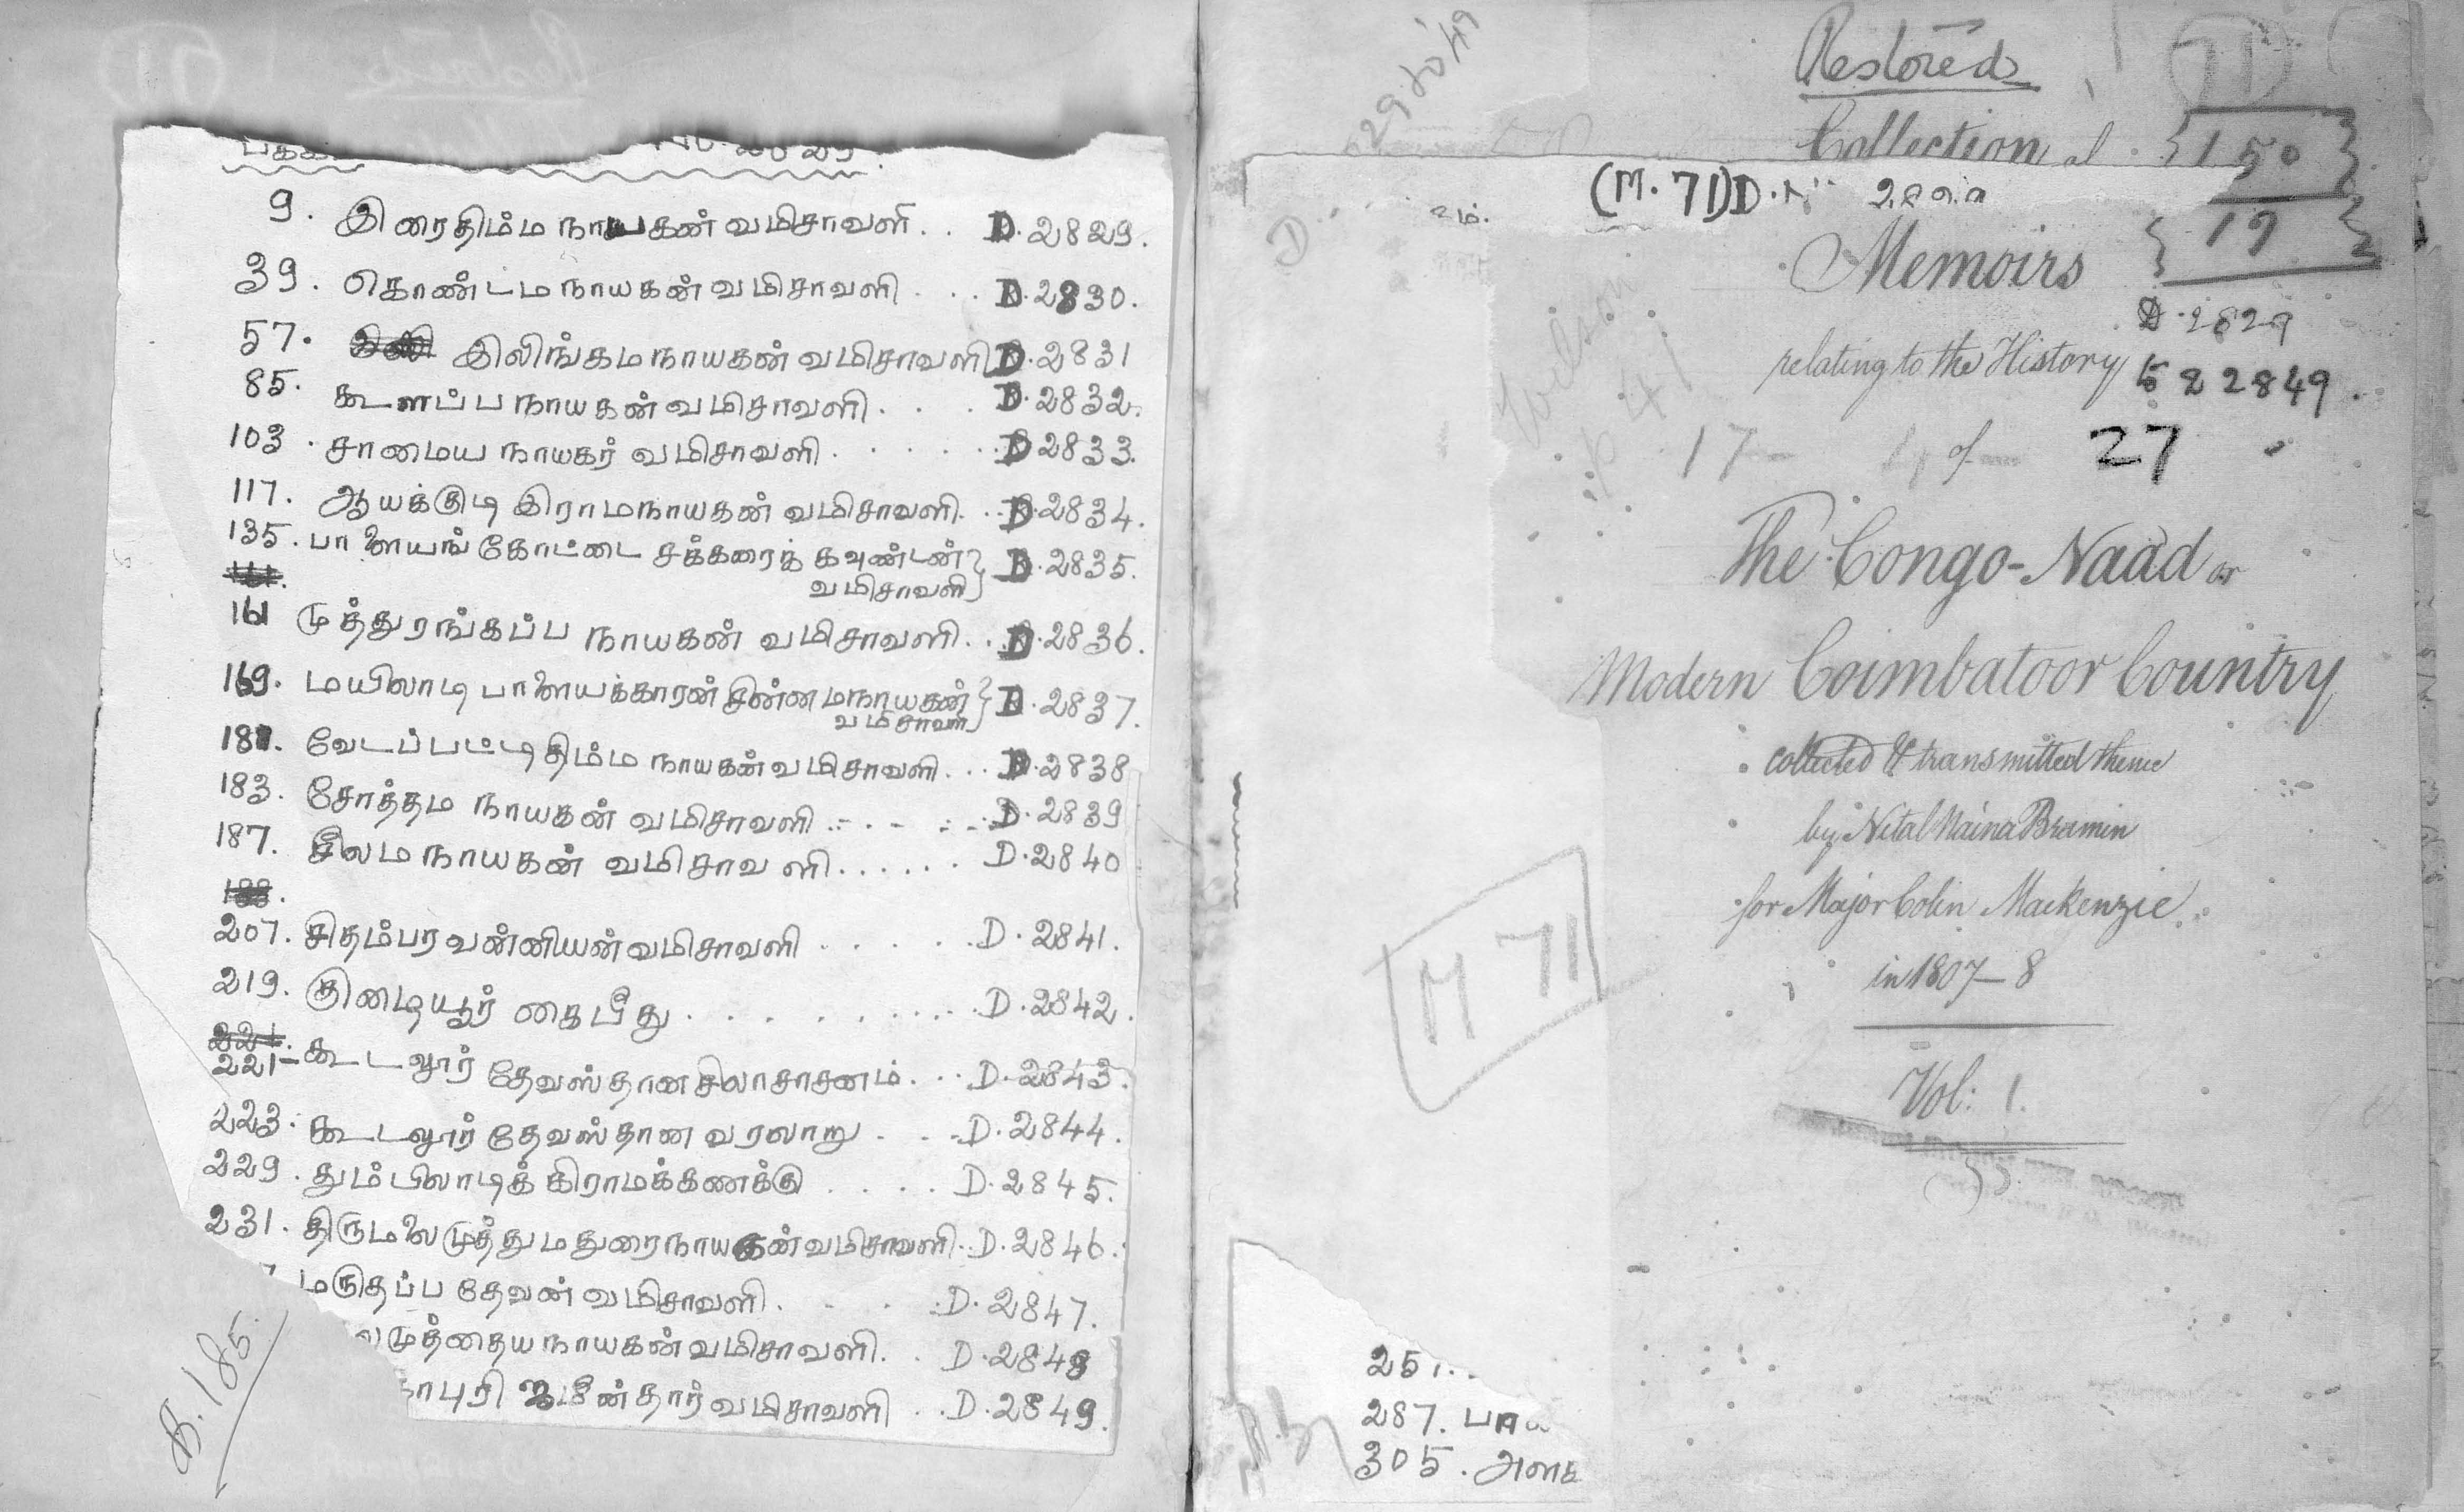 9. இரைதிம்ம நாயகன் வமிசாவளி . . D. 2829.
39. கொண்டம நாயகன் வமிசாவளி . . . D. 2830.
57. இலிங்கம நாயகன் வமிசாவளி D. 2831
85. கூளப்ப நாயகன் வமிசாவளி . . . D. 2832.
103. சாமைய நாயகர் வமிசாவளி . . . . . D 2833.
117. ஆயக்குடி இராமநாயகன் வமிசாவளி . . D. 2834.
135. பாளையங்கோட்டை சக்கரைக் கவுண்டன் D. 2835.
வமிசாவளி
161 முத்துரங்கப்ப நாயகன் வமிசாவளி . . D. 2836.
169. மயிலாடி பாளையக்காரன் சின்னமநாயகன் D. 2837.
வமிசாவளி
181. வேடப்பட்டி திம்ம நாயகன் வமிசாவளி . . . D. 2838
183. சோத்தம நாயகன் வமிசாவளி . . . D. 2839
187. சீலம நாயகன் வமிசாவளி . . . . . D. 2840
207. சிதம்பர வன்னியன் வமிசாவளி . . . . . D. 2841.
219. குமடியூர் கைபீது . . . . . . . . D. 2842.
221- கூடலூர் தேவஸ்தான சிலாசாசனம் . . . D. 2843.
223. கூடலூர் தேவஸ்தான வரலாறு . . . D. 2844.
229. தும்பிலாடிக் கிராமக்கணக்கு . . . . D. 2845.
231. திருமலை முத்து மதுரைநாயகன் வமிசாவளி . . D. 2846.
மருதப்ப தேவன் வமிசாவளி . . . . D. 2847.
முத்தைய நாயகன் வமிசாவளி . . D. 2848
புரி ஜமீன்தார் வமிசாவளி . . D. 2849.
Restored
71
Collection
150
(M. 71) D.
19
Memoirs
D. 2829
relating to the History
2849.
Wilson
p 41
17 - of 27
The Congo-Naad or
Modern Coimbatoor Country
collected & transmitted thence
by Nital Naina Bramin
for Major Colin Mackenzie
in 1807-8
M 71
Vol: 1.
251.
287.
305.